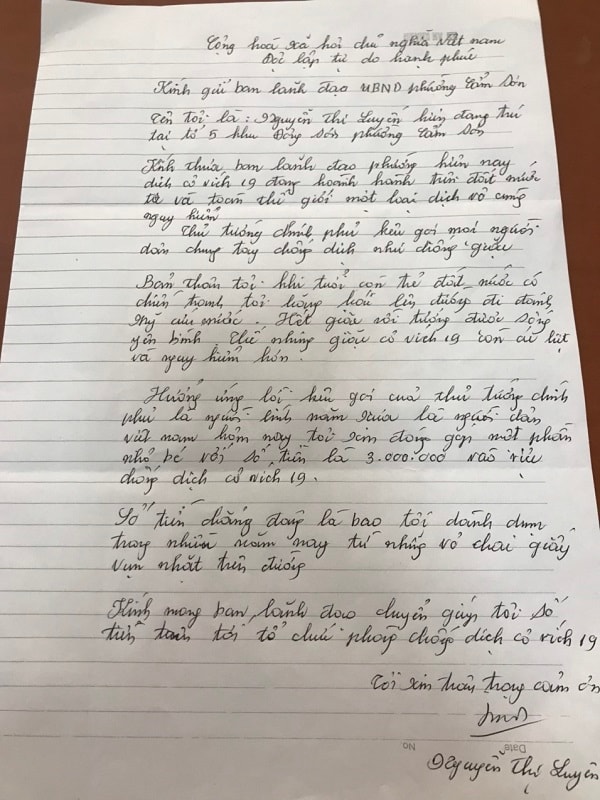 Cộng hoà xã hội chủ nghĩa Việt nam
Độc lập tự do hạnh phúc
Kính gửi ban lãnh đạo UBND phường Cẩm Sơn
Tên tôi là: Nguyễn Thị Luyến hiện đang trú
tại tổ 5 khu Đông Sơn phường Cẩm Sơn
Kính thưa ban lãnh đạo phường hiện nay
dịch cô vích 19 đang hoành hành trên đất nước
ta và toàn thế giới một loại dịch vô cùng
nguy hiểm
Thủ tướng chính phủ kêu gọi mọi người
dân chung tay chống dịch như chống giặc
Bản thân tôi khi tuổi còn trẻ đất nước có
chiến tranh tôi hăng hái lên đường đi đánh
Mỹ cứu nước. Hết giặc rồi tưởng được sống
yên bình. Thế nhưng giặc cô vích 19 còn ác liệt
và nguy hiểm hơn.
Hưởng ứng lời kêu gọi của thủ tướng chính
phủ là người lính năm xưa là người dân
việt nam hôm nay tôi xin đóng góp một phần
nhỏ bé với số tiền là 3.000.000 vào việc
chống dịch cô vích 19.
Số tiền chẳng đáng là bao tôi dành dụm
trong nhiều năm nay từ những vỏ chai giấy
vụn nhặt trên đường
Kính mong ban lãnh đạo chuyển giúp tôi số
tiền trên tới tổ chức phòng chống dịch cô vích 19
Tôi xin trân trọng cảm ơn
No
Date
Nguyễn Thị Luyến